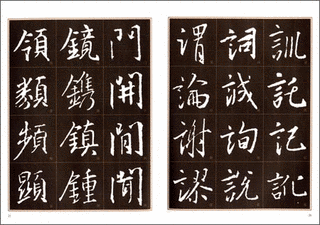 訓託記訛
詞誠詢說
謂論謝謬
門開間
鏡鐫鎮鍾
領類頻顯